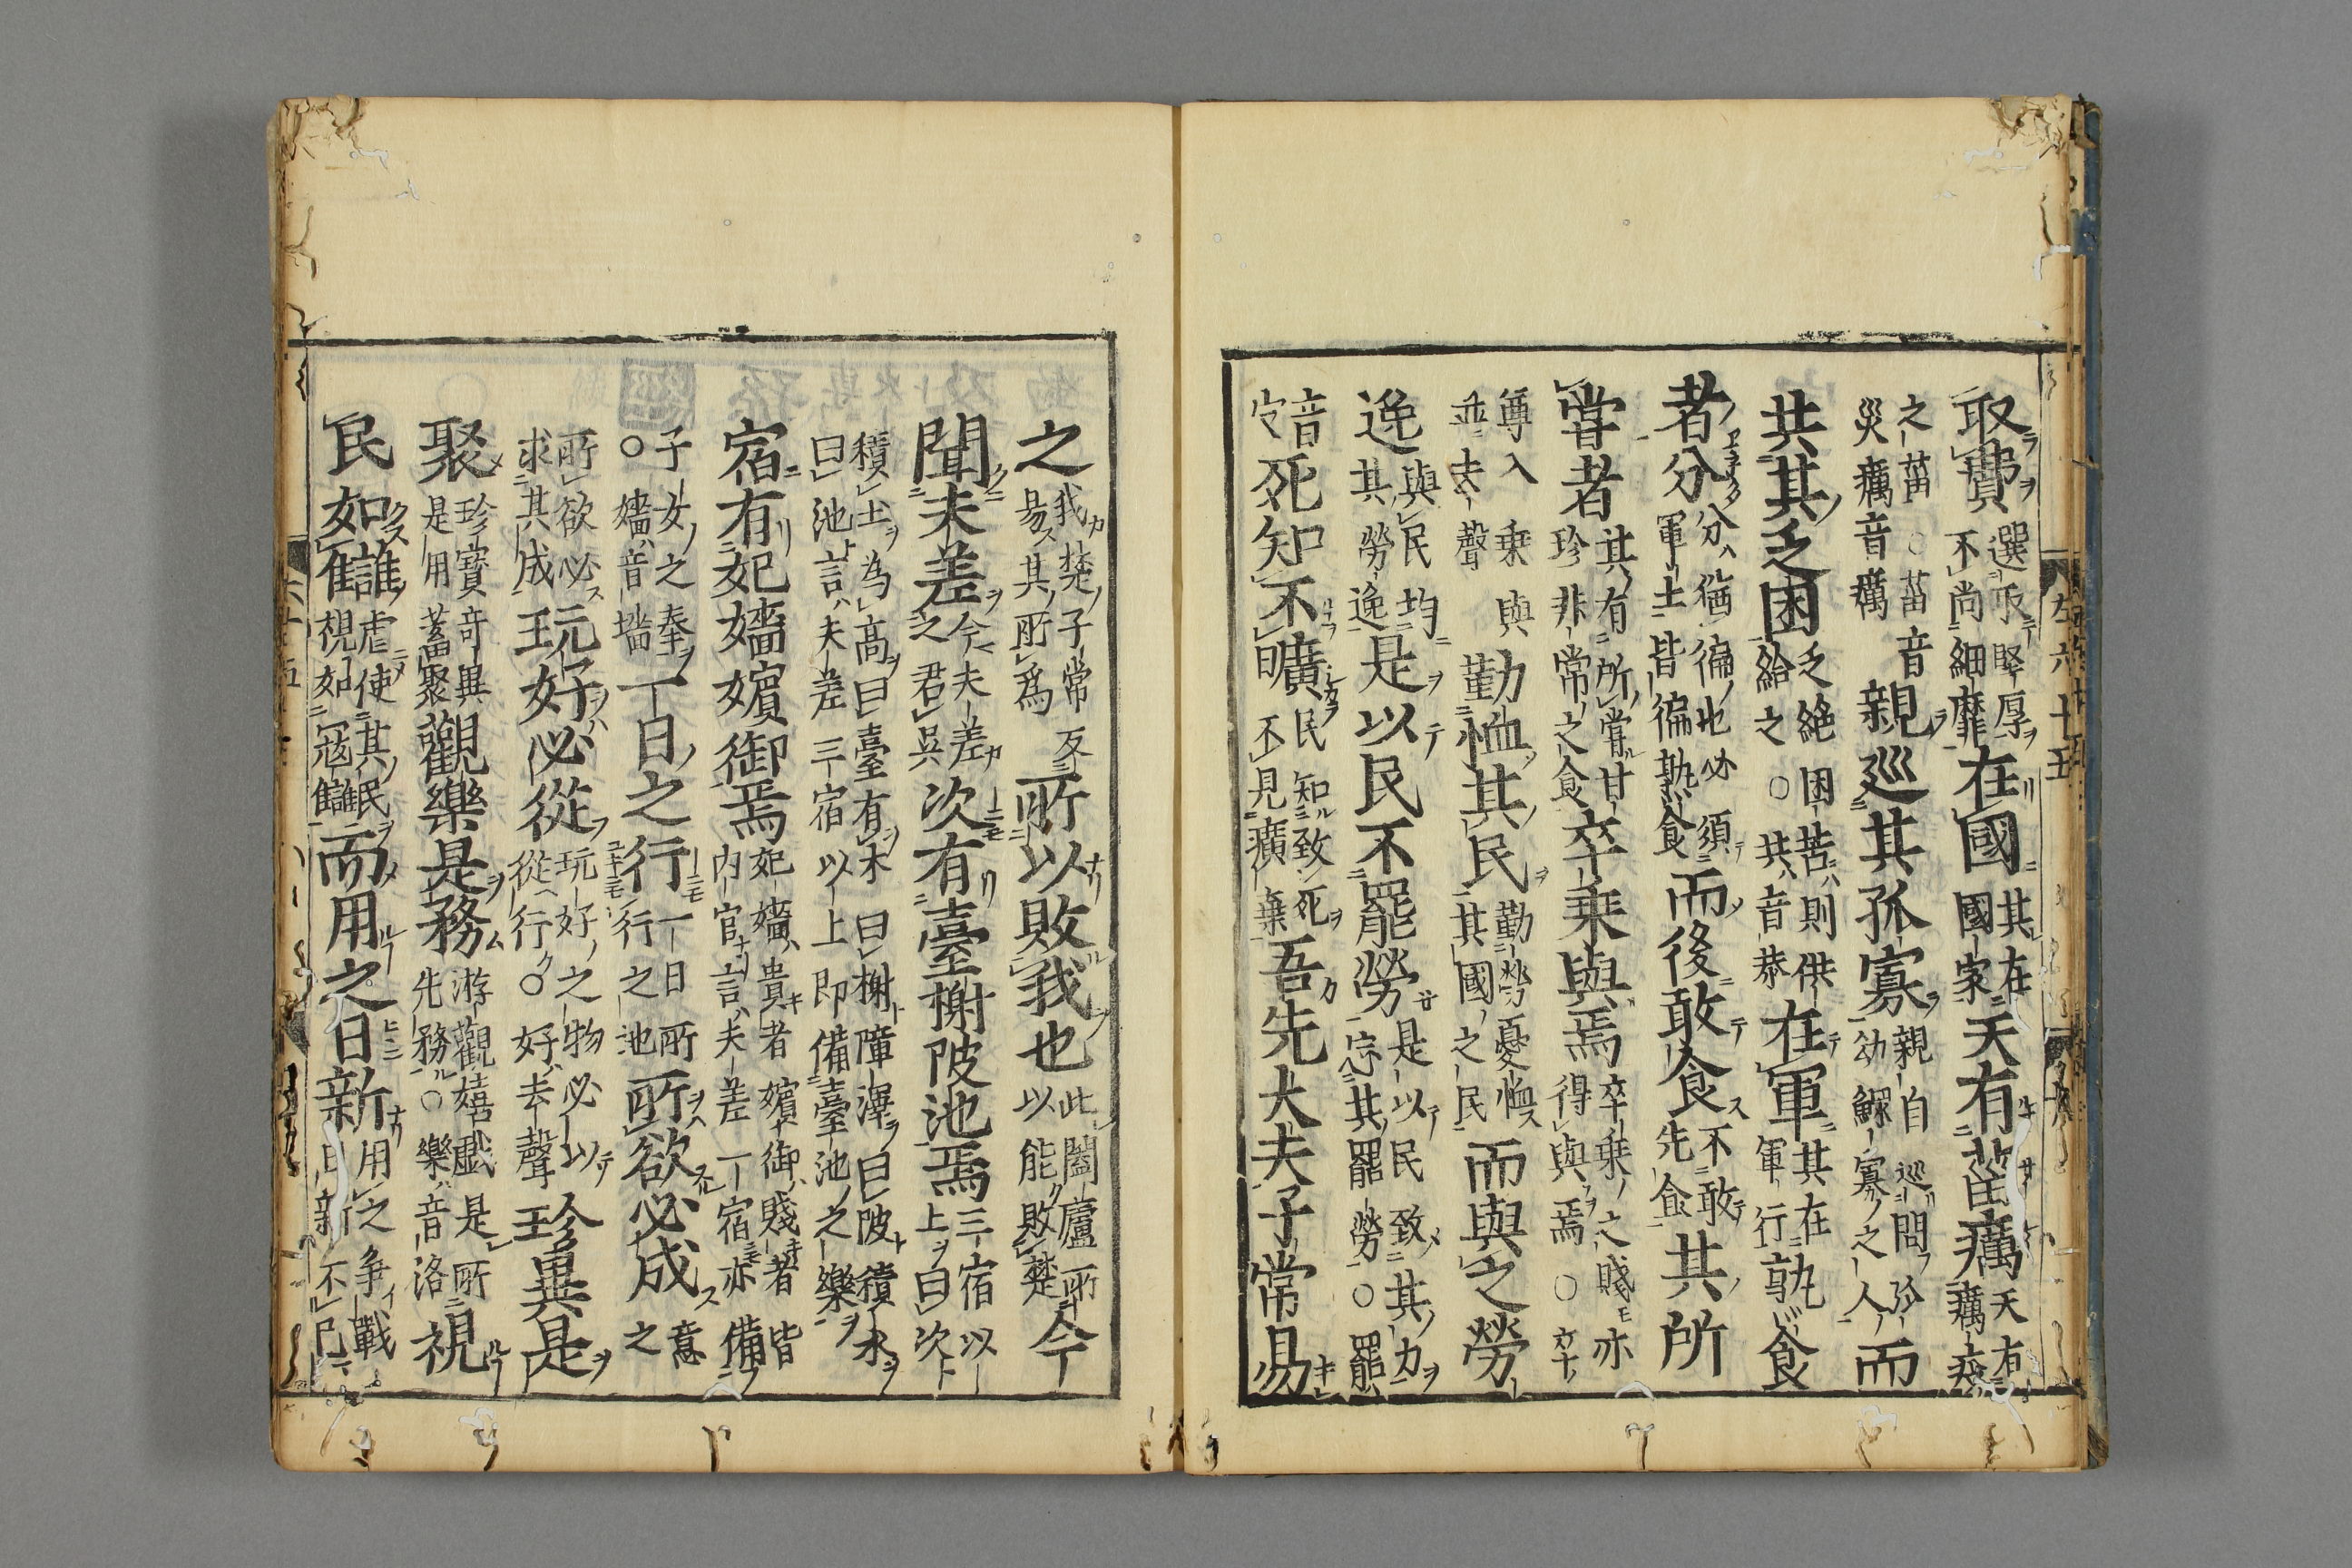 取費選取堅厚不尚細靡在國其在國家天有菑癘天有癘疾
之菑○菑音災癘音厲親巡其孤寡親自巡問孤幼鰥寡之人而
共其乏困乏絶困苦則供給之○共音恭在軍其在軍行孰食
者分分猶徧也必須軍士皆徧孰食而後敢食不敢先食其所
嘗者其有所嘗甘珍非常之食卒乗與焉卒乗之賤亦得與焉○卒
尊入乗與並去聲勤恤其民勤勞憂恤其國之民而與之勞
逸與民均其勞逸是以民不罷勞是以民致其力忘其罷勞○罷
音皮死知不曠民知致死不見曠棄吾先大夫子常易
之我楚子常易其所爲反所以敗我也此闔廬所以能敗楚今
聞夫差今夫差之君呉次有臺榭陂池焉三宿以上曰次
積土為高曰臺有木曰榭障澤曰陂積水曰池言夫差三宿以上即備臺池之樂
宿有妃嬙嬪御焉妃嬙貴者嬪御賤者皆内官言夫差一宿亦備
子女之奉○嬙音墻一日之行一日所行之池所欲必成意之
所欲必求其成玩好必從玩好之物必以從行○好去聲珍異是
聚珍寶奇異是用蓄聚觀樂是務游觀嬉戲是所先務○樂音洛視
民如讎虐使其民視如寇讎而用之日新用之争戰日新不已